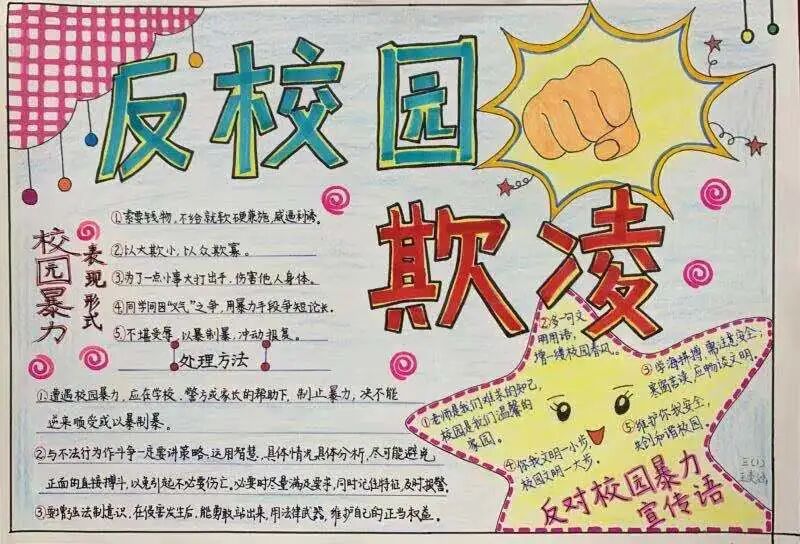 反校园
欺凌
校园暴力
表现形式
①索要钱物,不给就软硬兼施,威逼利诱。
②以大欺小,以众欺寡。
③为了一点小事大打出手,伤害他人身体。
④同学间因“义气”之争,用暴力手段争短论长。
⑤不堪受辱,以暴制暴,冲动报复。
处理方法
①遭遇校园暴力,应在学校、警方或家长的帮助下,制止暴力,决不能
逆来顺受或以暴制暴。
②与不法行为作斗争一定要讲策略、运用智慧,具体情况具体分析,尽可能避免
正面的直接搏斗,以免引起不必要伤亡。必要时尽量满足要求,同时记住特征,及时报警。
③要增强法制意识,在侵害发生后,能勇敢站出来,用法律武器,维护自己的正当权益。
①老师是我们难求的知己,
校园是我们温馨的
家园。
②多一句文
明用语,
增一缕校园春风。
③学海拼搏,需注意安全,
寒窗苦读,应畅谈文明。
④你我文明一小步,
校园文明一大步。
⑤维护你我安全,
共创和谐校园。
反对校园暴力
宣传语
三(1)